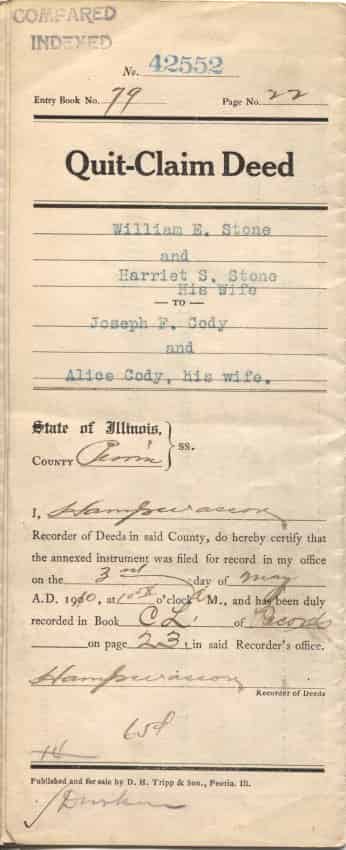 COMPARED
INDEXED
No. 42552
Entry Book No. 79 Page No. 22
Quit-Claim Deed
William E. Stone
and
Harriet S. Stone
His Wife
— TO —
Joseph F. Cody
and
Alice Cody, his wife.
State of Illinois,
COUNTY Peoria } ss.
I,
Recorder of Deeds in said County, do hereby certify that
the annexed instrument was filed for record in my office
on the 3rd day of May
A.D. 19 0, at o'clock M., and has been duly
recorded in Book CL of Records
on page 23, in said Recorder's office.
Recorder of Deeds
Published and for sale by D. H. Tripp & Son., Peoria. Ill.